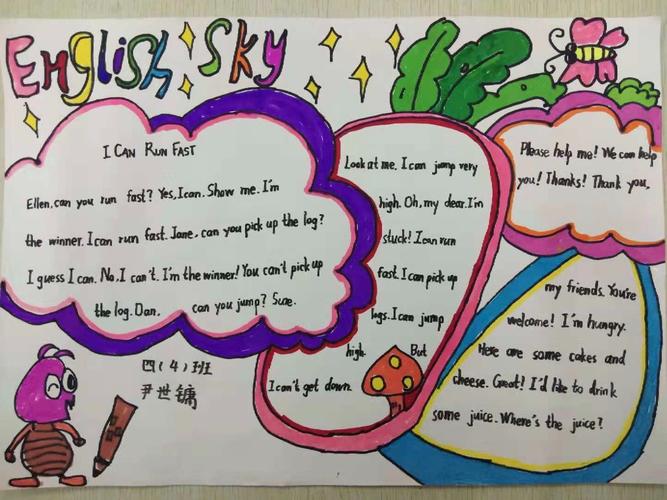 ENgliSh Sky
I CAN RUN FAST
Ellen, can you run fast? Yes, I can. Show me. I'm
the winner. I can run fast. Jane, can you pick up the log?
I guess I can. No. I can't. I'm the winner! You can't pick up
the log. Dan, can you jump? Sure.
Look at me. I can jump very
high. Oh, my dear. I'm
stuck! I can run
fast. I can pick up
logs. I can jump
high. But
I can't get down.
Please help me! We can help
you! Thanks! Thank you,
my friends. You're
welcome! I'm hungry.
Here are some cakes and
cheese. Great! I'd like to drink
some juice. Where's the juice?
四(4)班
尹世镛